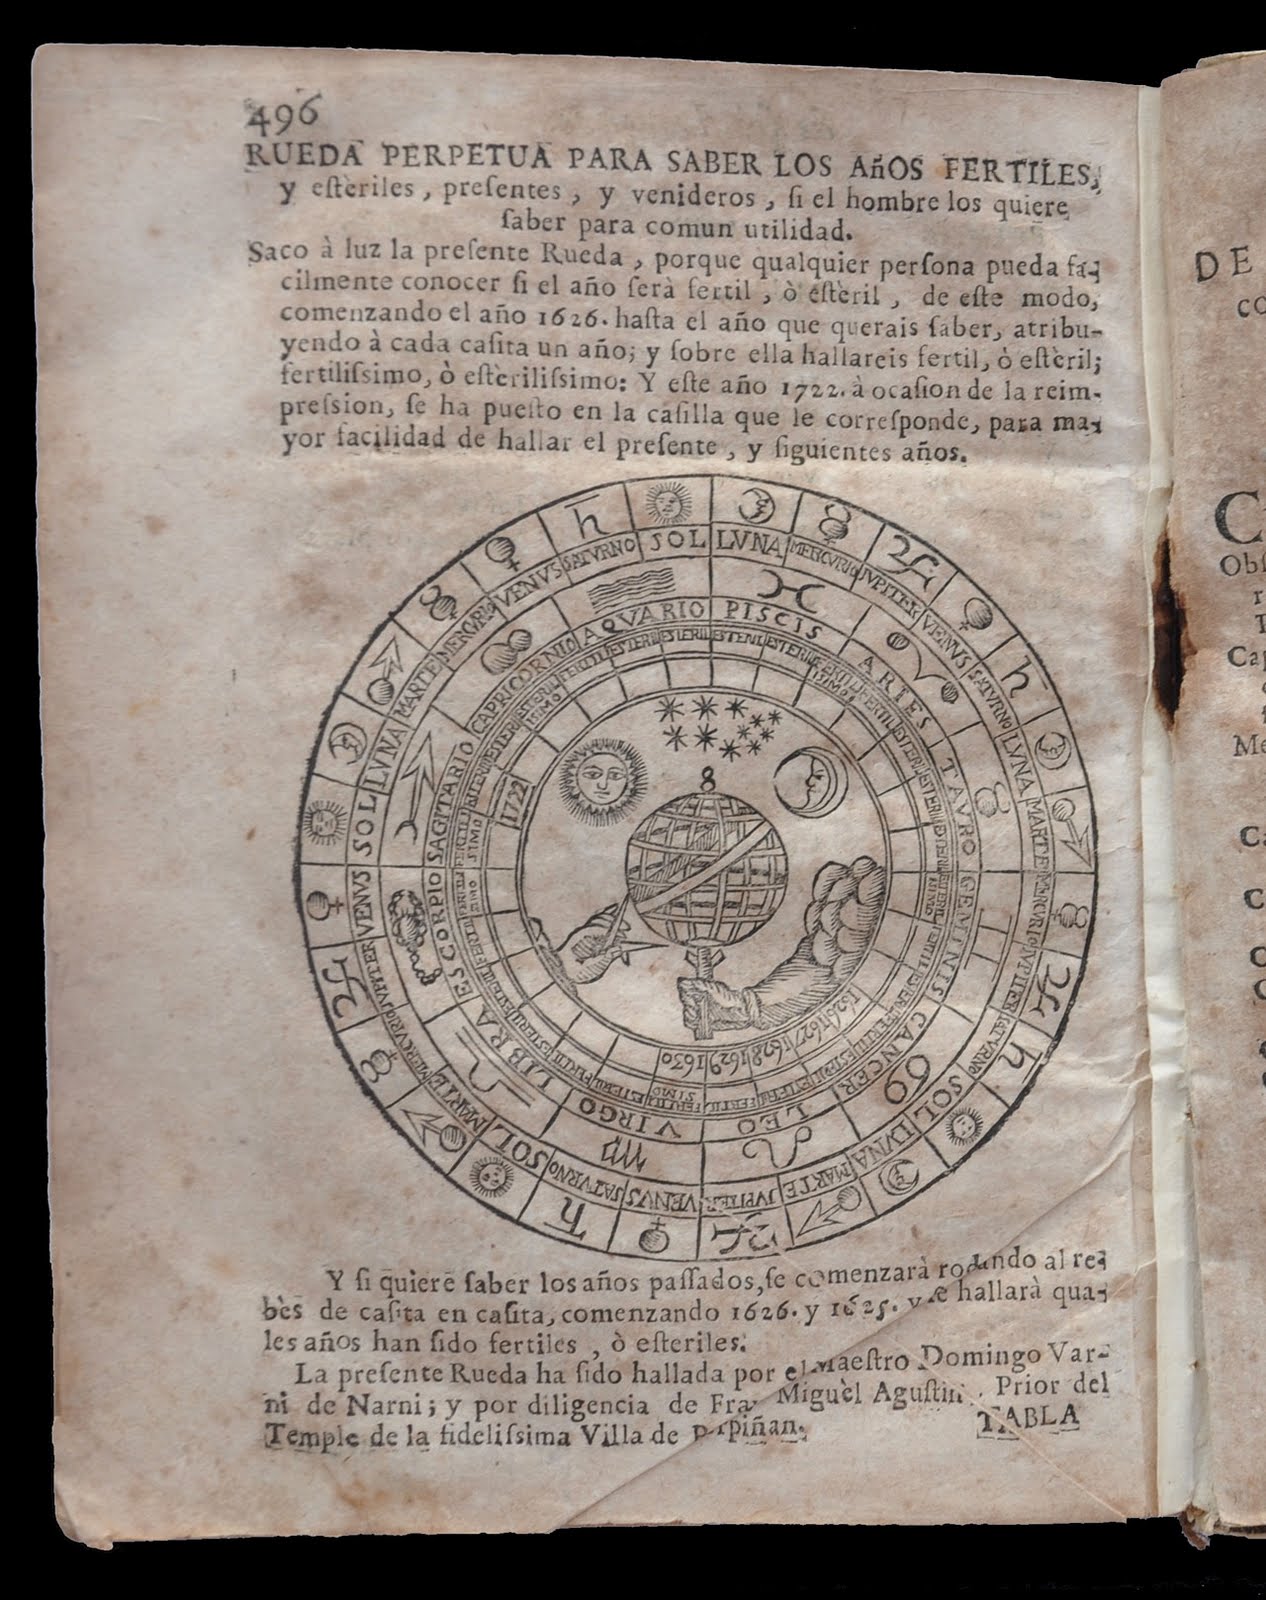 496
RUEDA PERPETUA PARA SABER LOS AñOS FERTILES,
y estèriles, presentes, y venideros, si el hombre los quiere
saber para comun utilidad.
Saco à luz la presente Rueda, porque qualquier persona pueda fa-
cilmente conocer si el año serà fertil, ò estèril, de este modo,
comenzando el año 1626. hasta el año que querais saber, atribu-
yendo à cada casita un año; y sobre ella hallareis fertil, ò estèril;
fertilissimo, ò estèrilissimo: Y este año 1722. à ocasion de la reim-
pression, se ha puesto en la casilla que le corresponde, para ma-
yor facilidad de hallar el presente, y siguientes años.
SOL LVNA MERCVRIO JVPITER VENVS SATVRNO LVNA MARTE MERCVRIO JVPITER SATVRNO SOL LVNA MARTE JVPITER VENVS SATVRNO SOL MARTE MERCVRIO JVPITER VENVS SOL LVNA MARTE MERCVRIO VENVS SATVRNO
AQVARIO PISCIS ARIES TAVRO GEMINIS CANCER LEO VIRGO LIBRA ESCORPIO SAGITARIO CAPRICORNIO
1722
8
1626 1627 1628 1629 1630
Y si quiere saber los años passados, se comenzarà rodando al re-
bès de casita en casita, comenzando 1626. y 1625. y se hallarà qua-
les años han sido fertiles, ò esteriles.
La presente Rueda ha sido hallada por el Maestro Domingo Var-
ni de Narni; y por diligencia de Fray Miguèl Agustin, Prior del
Temple de la fidelissima Villa de Perpiñan.
TABLA
DE
CO
C
Obs
r
T
Cap
Me
Ca
C